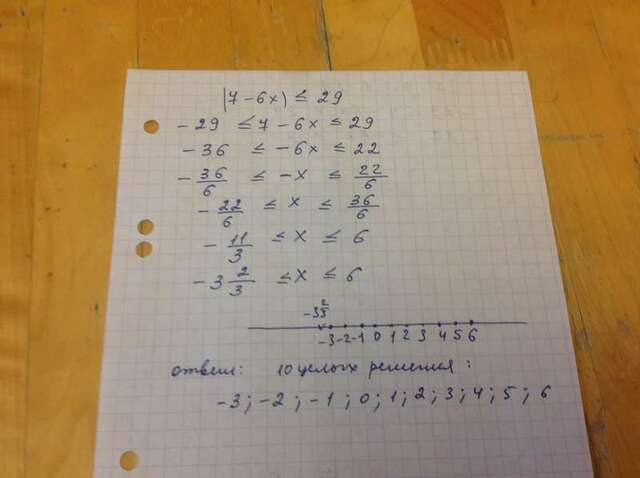 |7-6x| ≤ 29
-29 ≤ 7-6x ≤ 29
-36 ≤ -6x ≤ 22
-36/6 ≤ -x ≤ 22/6
-22/6 ≤ x ≤ 36/6
-11/3 ≤ x ≤ 6
-3 2/3 ≤ x ≤ 6
-3 2/3
-3 -2 -1 0 1 2 3 4 5 6
ответ: 10 целых решения:
-3; -2; -1; 0; 1; 2; 3; 4; 5; 6